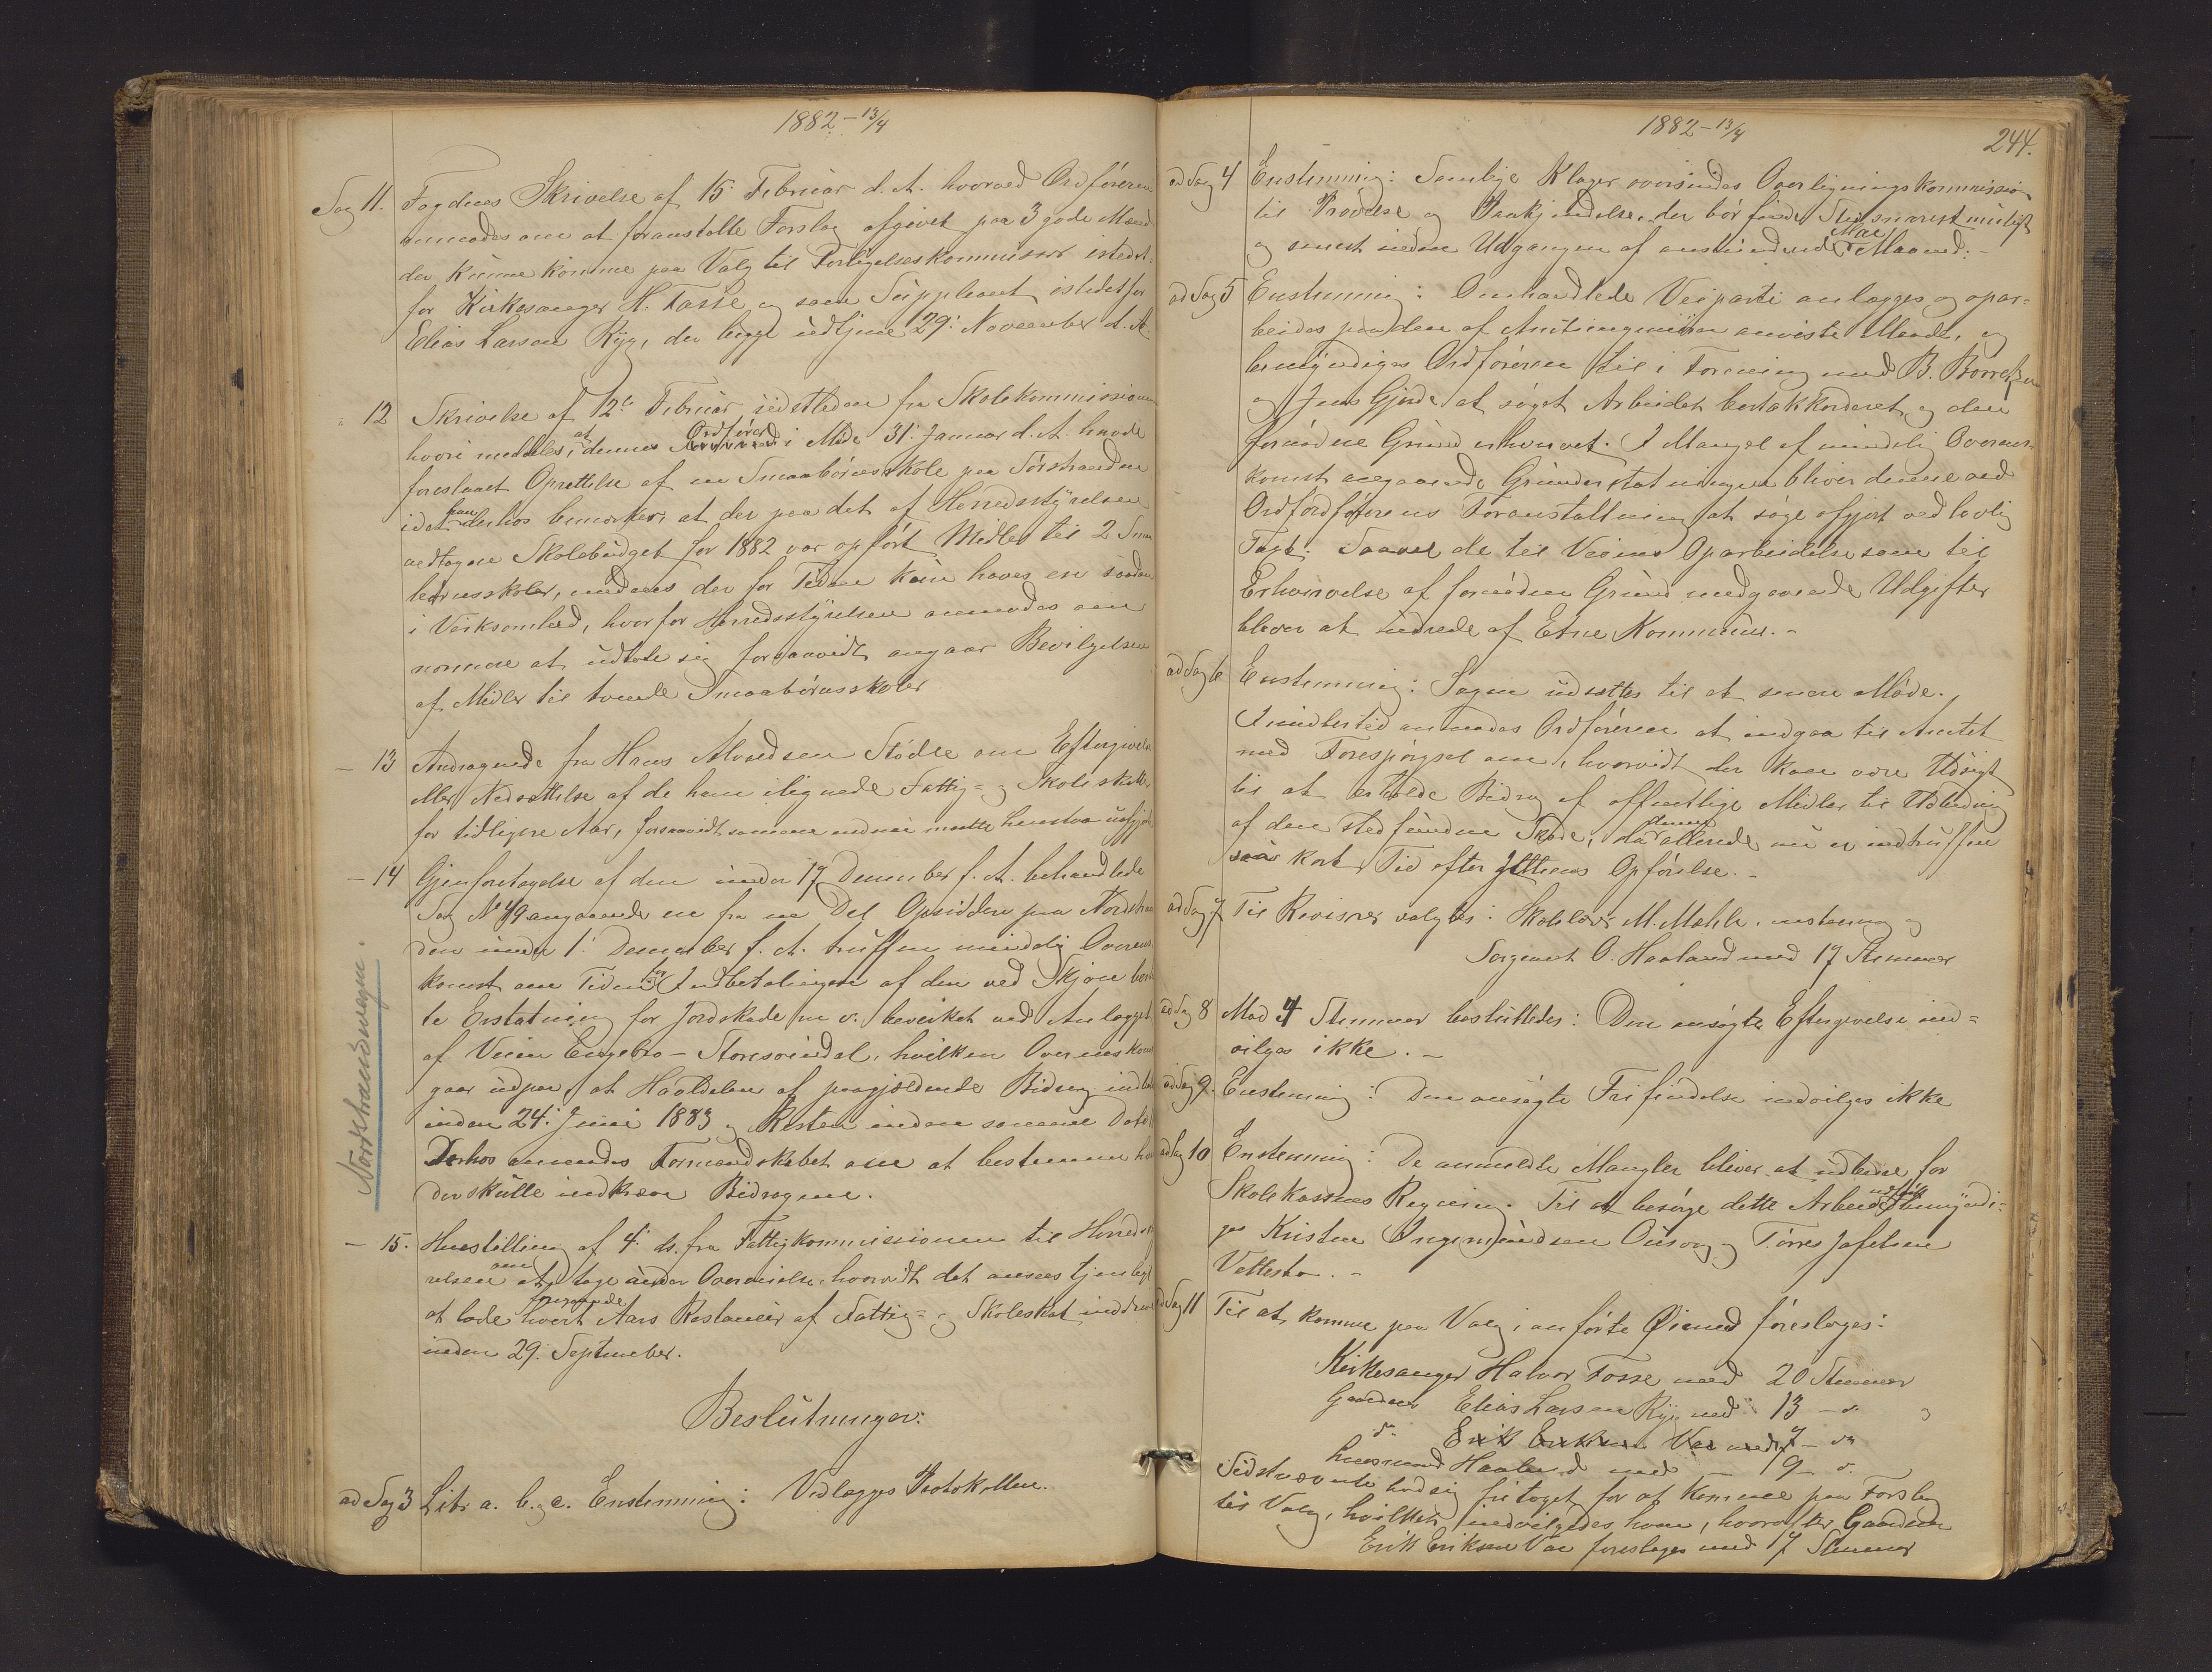 1882 - 13/4
Sag 11. Fogdens Skrivelse af 15. Februar d. A. hvorved Ordføreren
anmodes om at foranstalte Forslag afgivet paa 3 gode Mænd
der kunne komme paa Valg til Forligelseskommissær istedet-
for Kirkesanger H. Fosse og som Suppleant istedetfor
Elias Larsen Ryg, der begge udtjene 29. November d. A.
" 12 Skrivelse af 12te Februar sidstleden fra Skolekommissionen
hvori meddeles, at dennes Ordfører i Møde 31. Januar d. A. havde
foreslaaet Oprettelse af en Smaabørnsskole paa Sørstranden
idet han derhos bemærker, at der paa det af Herredsstyrelsen
vedtagne Skolebudget for 1882 var opført Midler til 2 Smaa
børnsskoler, medens der for Tiden kun haves en saadan
i Virksomhed, hvorfor Herredsstyrelsen anmodes om
nærmere at udtale sig forsaavidt angaar Bevilgelsen
af Midler til tvende Smaabørnsskoler
- 13 Andragende fra Hans Amundsen Stødle om Eftergivelse
eller Nedsættelse af de ham ilignede Fattig- og Skoleskatter
for tidligere Aar, forsaavidt samme endnu maatte henstaa uafgjort
- 14 Gjenforetagelse af den under 17 Desember f. A. behandlede
Sag No 49 angaaende en fra en Del Opsiddere paa Nordstran
den under 1. Desember f. A. truffen mindelig Overens
komst om Tiden for Indbetalingen af den ved Skjøn
te Erstatning for Jordskade m. v. bevirket ved Anlægget
af Veien Engebro - Storesvindal, hvilken Overenskomst
gaar ud paa, at Halvdelen af paagjældende Bidrag indbet
inden 24. Juni 1883 og Resten inden samme Dato
Derhos anmodes Formandskabet om at bestemme
der skulle indkræve Bidragene.
Nordstrandsvegen.
- 15. Henstilling af 4. ds. fra Fattigkommissionen til Herredssty
relsen om at tage under Overveielse, hvorvidt det ansees tjenligt
at lade hvert foregaaende Aars Restancer af Fattig- og Skoleskat inddrive
inden 29. September.
Beslutninger:
ad Sag 3 Litr. a. b. og c. Enstemmig: Vedlægges Protokollen.
1882 - 13/4
244.
ad Sag 4 Enstemmig: Samtlige Klager oversendes Overligningskommissio
til Prøvelse og Paakjendelse, der bør finde Sted snarest muligt
og senest inden Udgangen af anstundende Mai Maaned. -
ad Sag 5 Enstemmig: Omhandlede Veiparti anlægges og opar-
beides paa den af Amtsingeniøren anviste Maade, og
bemyndiges Ordføreren til i Forening med B. Børretzen
og Jens Gjerde at søgt Arbeidet bortakkorderet og den
fornødne Grund erhvervet. I Mangel af mindelig Overens-
komst angaaende Grunderstatningen bliver denne ved
Ordfordførerens Foranstaltning at søge afgjort ved lovlig
Taxt. Saavel de til Veiens Oparbeidelse som til
Erhvervelse af fornøden Grund medgaaende Udgifter
bliver at udrede af Etne Kommune. -
ad Sag 6 Enstemmig: Sagen udsættes til et senere Møde.
Imidlertid anmodes Ordføreren at indgaa til Amtet
med Forespørgsel om, hvorvidt der kan være Udsigt
til at erholde Bidrag af offentlige Midler til Udbedring
af den stedfundne Skade, da denne allerede nu er indtruffen
saa kort Tid efter Opførelse. -
ad Sag 7 Til Revisorer valgtes: Skolelærer M. Mæhle, enstemmig og
Sergeant O. Haaland med 17 Stemmer
ad Sag 8 Mod 4 Stemmer besluttedes: Den ansøgte Eftergivelse ind-
vilges ikke. -
ad Sag 9. Enstemmig: Den ansøgte Frifindelse indvilges ikke
ad Sag 10 Enstemmig: De anmeldte Mangler bliver at udbedre for
Skolekassens Regning. Til at besørge dette Arbeide udført bemyndi-
ges Kristen Ingemundsen Ousvog og Tørres Jafetsen
Vettestø. -
ad Sag 11 Til at komme paa Valg i anførte Øiemed foreslages:
Kirkesanger Halvor Fosse med 20 Stemmer
Gaardm. Elias Larsen Ryg med 13 - do
do. Erik Eriksen Vae med 7 - do
Lensmand Haaland med - 9 - do.
Sidstnævnte bad sig fritaget for at komme paa Forslag
til Valg, hvilket indvilgedes ham, hvorefter Gaardm
Erik Eriksen Vae foreslages med 17 Stemmer